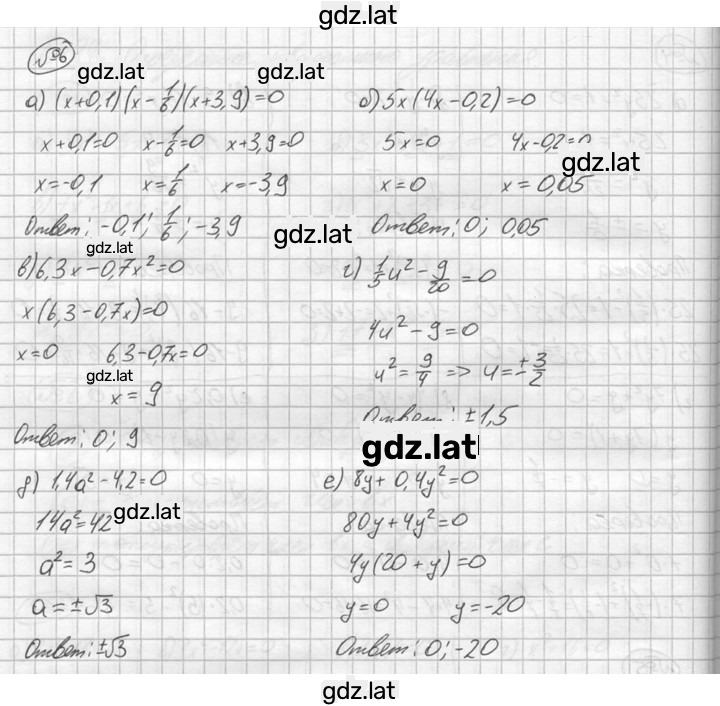 gdz.lat
№6
gdz.lat gdz.lat
а) (x+0,1)(x-1/6)(x+3,9)=0
x+0,1=0 x-1/6=0 x+3,9=0
x=-0,1 x=1/6 x=-3,9
Ответ: -0,1; 1/6; -3,9
б) 5x(4x-0,2)=0
5x=0 4x-0,2=0
gdz.lat
x=0 x=0,05
Ответ: 0; 0,05
gdz.lat
gdz.lat
в) 6,3x-0,7x²=0
x(6,3-0,7x)=0
x=0 6,3-0,7x=0
gdz.lat
x=9
Ответ: 0; 9
г) 1/5u²-9/20=0
4u²-9=0
u²=9/4 => u=±3/2
Ответ: ±1,5
gdz.lat
д) 1,4a²-4,2=0
gdz.lat
14a²=42
a²=3
a=±√3
Ответ: ±√3
е) 8y+0,4y²=0
80y+4y²=0
4y(20+y)=0
y=0 y=-20
Ответ: 0; -20
gdz.lat